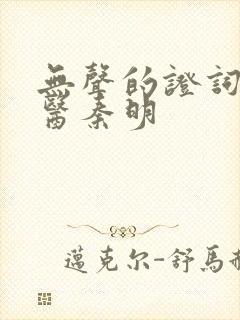 無聲的證詞
醫秦明
邁克尔-舒馬赫